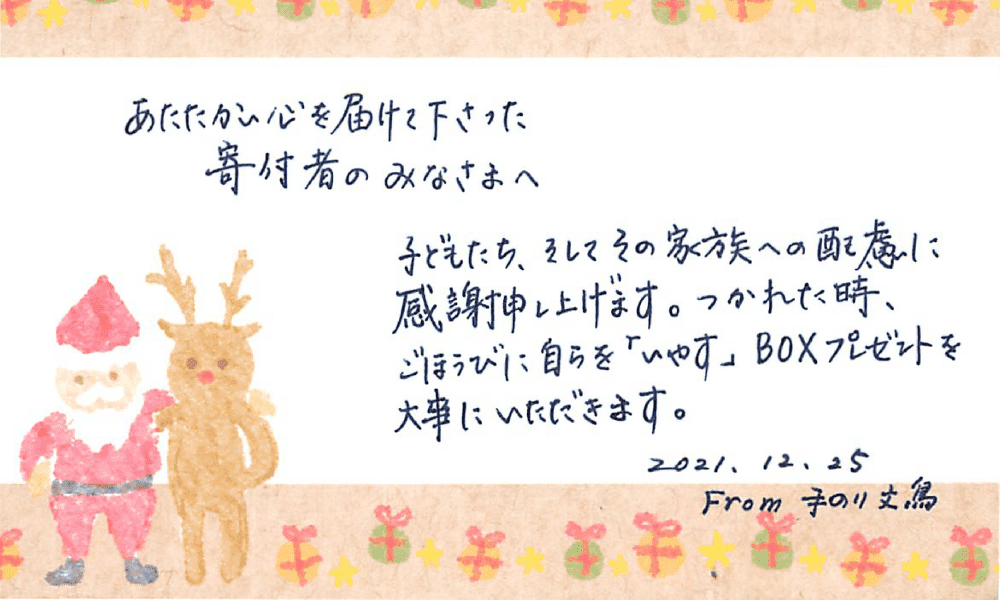 あたたかい心を届けて下さった
寄付者のみなさまへ
子どもたち、そしてその家族への配慮に
感謝申し上げます。つかれた時、
ごほうびに自らを「いやす」BOXプレゼントを
大事にいただきます。
2021.12.25
From 手のり文鳥